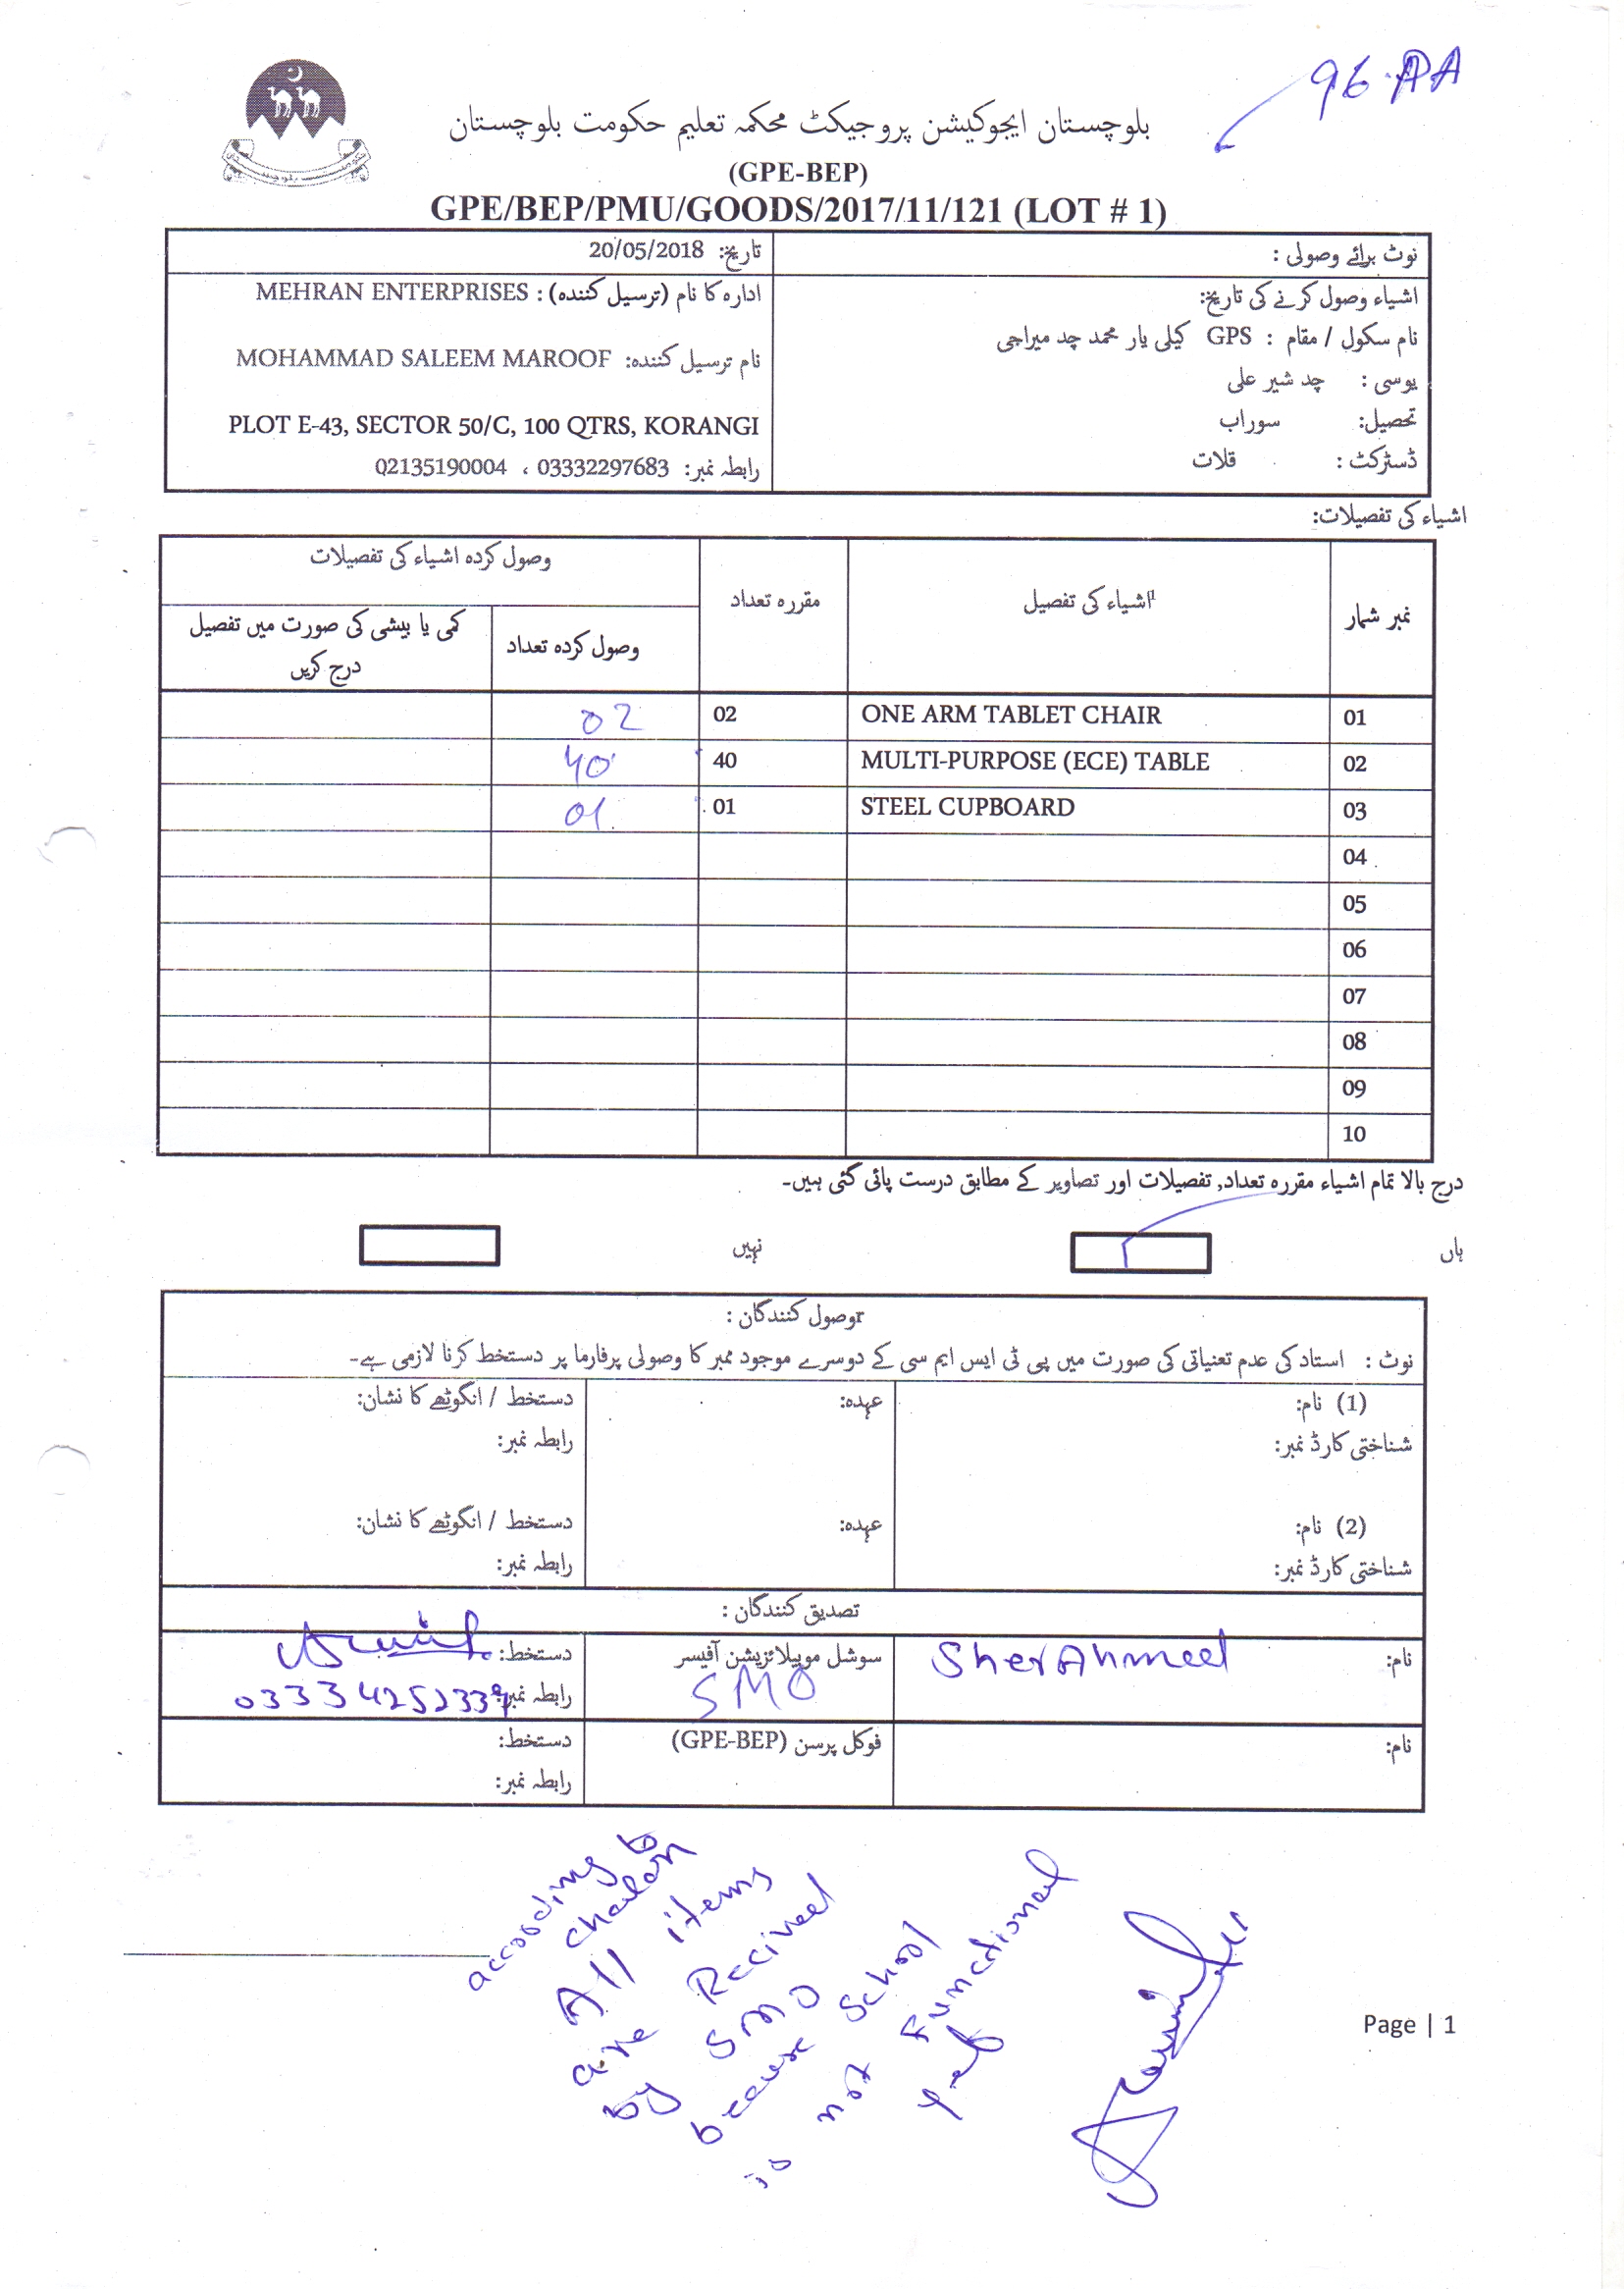 96 AA
بلوچستان ایجوکیشن پروجیکٹ محکمہ تعلیم حکومت بلوچستان
(GPE-BEP)
GPE/BEP/PMU/GOODS/2017/11/121 (LOT # 1)
نوٹ برائے وصولی :
تاریخ: 20/05/2018
اشیاء وصول کرنے کی تاریخ:
نام سکول / مقام : GPS کیلی یار محمد چد میراجی
یوسی : چد شیر علی
تحصیل: سوراب
ڈسٹرکٹ : قلات
ادارہ کا نام (ترسیل کنندہ) : MEHRAN ENTERPRISES
نام ترسیل کنندہ: MOHAMMAD SALEEM MAROOF
PLOT E-43, SECTOR 50/C, 100 QTRS, KORANGI
رابطہ نمبر: 03332297683 ، 02135190004
اشیاء کی تفصیلات:
نمبر شمار اشیاء کی تفصیل مقررہ تعداد وصول کردہ اشیاء کی تفصیلات
وصول کردہ تعداد کمی یا بیشی کی صورت میں تفصیل
درج کریں
01 ONE ARM TABLET CHAIR 02 02
02 MULTI-PURPOSE (ECE) TABLE 40 40
03 STEEL CUPBOARD 01 01
04
05
06
07
08
09
10
درج بالا تمام اشیاء مقررہ تعداد, تفصیلات اور تصاویر کے مطابق درست پائی گئی ہیں۔
ہاں نہیں
وصول کنندگان :
نوٹ : استاد کی عدم تعنیاتی کی صورت میں پی ٹی ایس ایم سی کے دوسرے موجود ممبر کا وصولی پرفارما پر دستخط کرنا لازمی ہے۔
(1) نام: عہدہ: دستخط / انگوٹھے کا نشان:
شناختی کارڈ نمبر: رابطہ نمبر:
(2) نام: عہدہ: دستخط / انگوٹھے کا نشان:
شناختی کارڈ نمبر: رابطہ نمبر:
تصدیق کنندگان :
نام: Sher Ahmed سوشل موبیلائزیشن آفیسر دستخط:
SMO رابطہ نمبر: 03334252339
نام: فوکل پرسن (GPE-BEP) دستخط:
رابطہ نمبر:
according to
chalan
All items
are Recived
by SMO
because School
is not Functional
yet
Page | 1